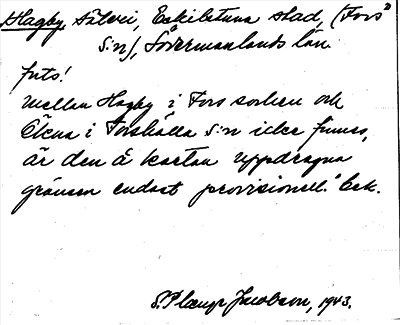 Hagby säteri, Eskilstuna stad, (Fors
s:n), Södermanlands län.
mellan Hagby i Fors socken och
i Torshälla s:n icke finnes,
är den å kartan uppdragna
gränsen endast provisionell." Esk.
Jacobson, 1943.